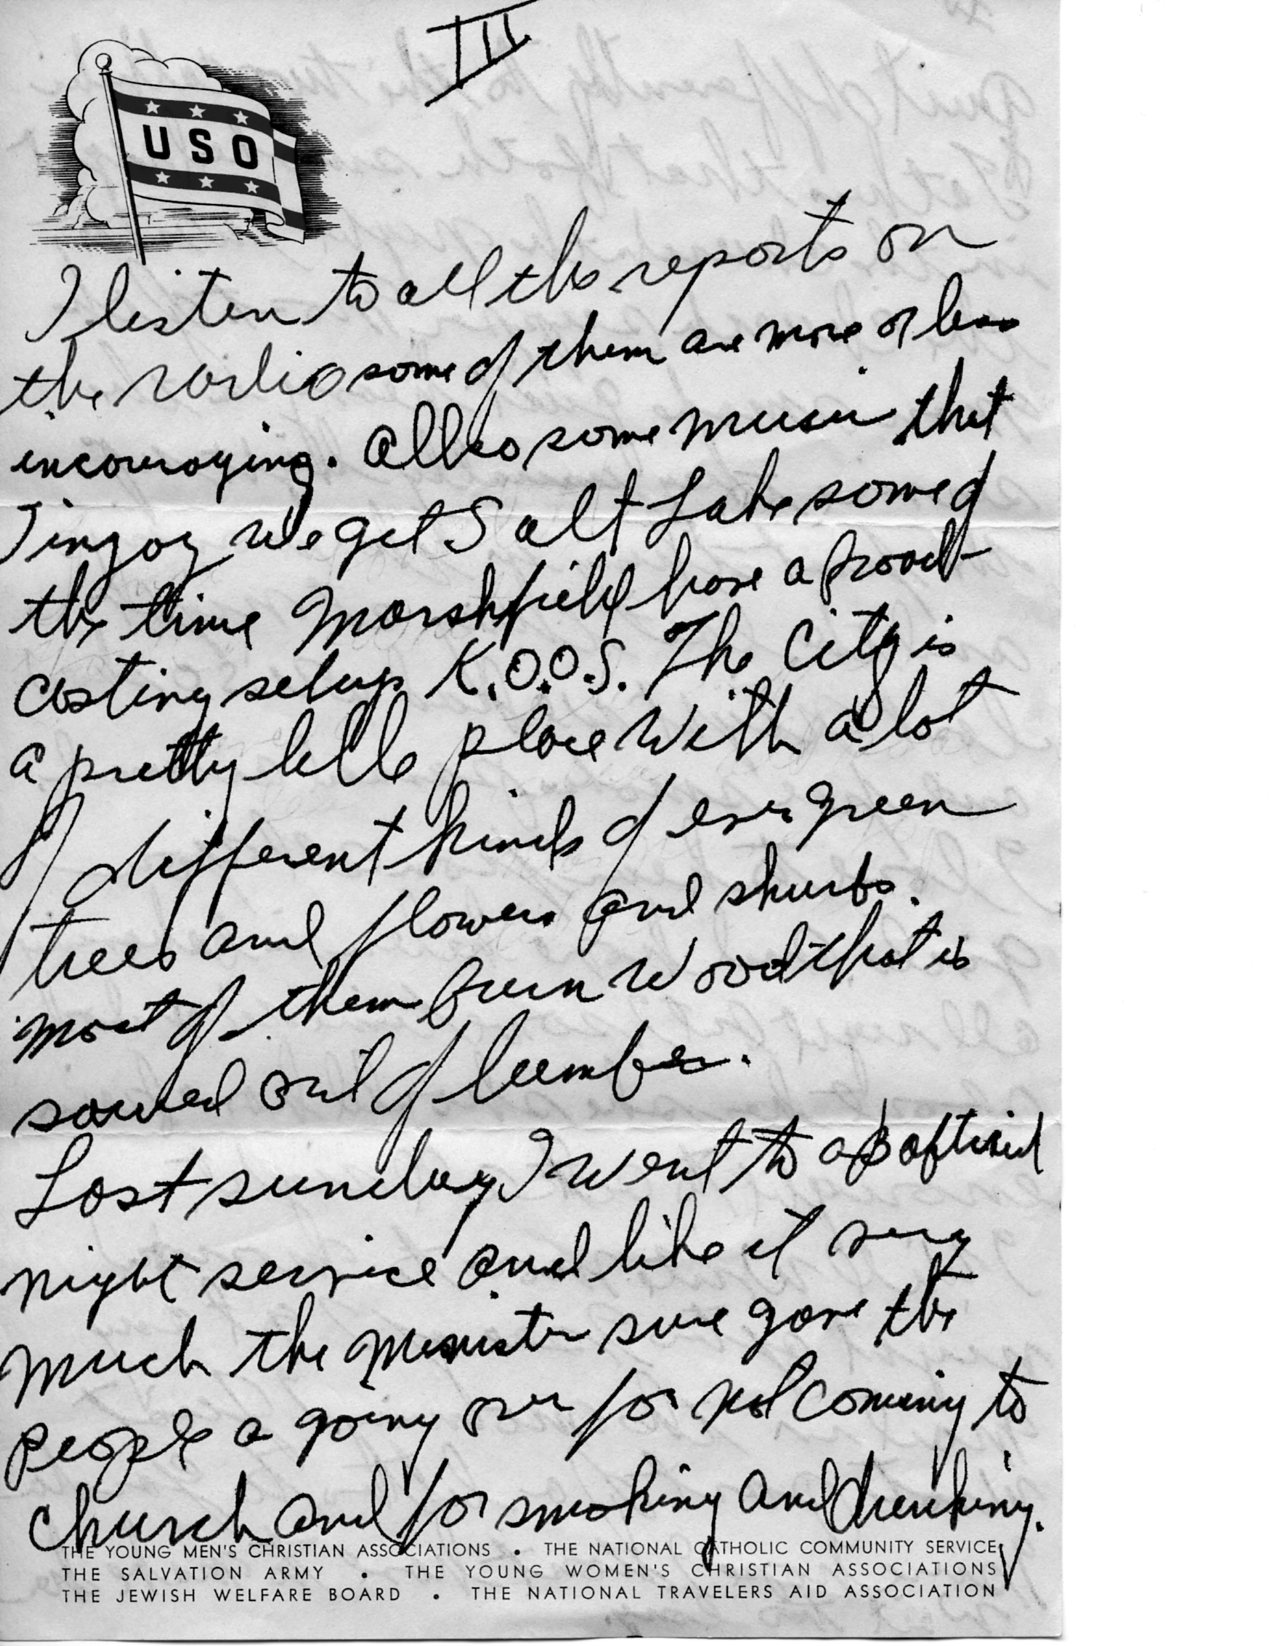 III
USO
I listen to all the reports on
the radio some of them are more or less
incouraying. Allso some music that
I injoy we get Salt Lake some of
the time Marshfield have a broad-
casting setup K.O.O.S. The City is
a pretty little place with a lot
of different kinds of evergreen
trees and flowers and shurbs.
most of them burn wood that is
sawed out of lumber.
Last sunday I went to a Baptist
night service and like it very
much the Minister sure gave the
people a going over for not coming to
church and for smoking and drinking.
THE YOUNG MEN'S CHRISTIAN ASSOCIATIONS • THE NATIONAL CATHOLIC COMMUNITY SERVICE
THE SALVATION ARMY • THE YOUNG WOMEN'S CHRISTIAN ASSOCIATIONS
THE JEWISH WELFARE BOARD • THE NATIONAL TRAVELERS AID ASSOCIATION